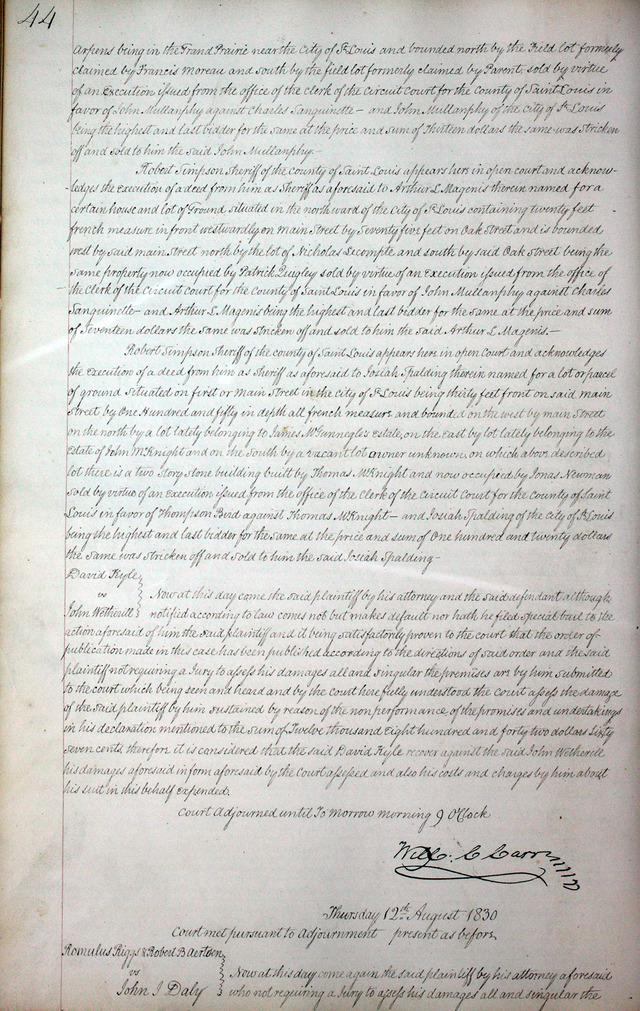 44
Arpens being in the Grand Prairie near the City of St Louis and bounded north by the Field lot formerly
claimed by Francis Moreau and South by the field lot formerly claimed by Parent, sold by virtue
of an Execution issued from the office of the clerk of the Circuit Court for the County of Saint Louis in
favor of John Mullanphy against Charles Sanguinette – and John Mullanphy of the city of St Louis
being the highest and last bidder for the same at the price and sum of Thirteen dollars the same was Stricken
off and sold to him the said John Mullanphy –
Robert Simpson Sheriff of the county of Saint Louis appears here in open court and acknow-
ledges the execution of a deed from him as Sheriff as aforesaid to Arthur L. Magenis therein named for a
certain house and lot of Ground situated in the north ward of the City of St Louis containing twenty feet
french measure in front westwardly on Main Street by Seventy five feet on Oak Street and is bounded
west by said main Street north by the lot of Nicholas Lecompte and south by said Oak Street being the
same property now occupied by Patrick Quigley sold by virtue of an Execution issued from the office of
the Clerk of the Circuit Court for the County of Saint Louis in favor of John Mullanphy against Charles
Sanguinette – and Arthur L. Magenis being the highest and last bidder for the same at the price and sum
of Seventeen dollars the same was stricken off and sold to him the said Arthur L Magenis. –
Robert Simpson Sheriff of the county of Saint Louis appears here in open Court and acknowledges
the Execution of a deed from him as Sheriff as aforesaid to Josiah Spalding therein named for a lot or parcel
of ground situated on first or Main Street in the city of St Louis being thirty feet front on said main
Street by One Hundred and fifty in depth all french measure and bounded on the west by main Street
on the north by a lot lately belonging to James McGunnegle's Estate, on the East by lot lately belonging to the
Estate of John McKnight and on the South by a vacant lot owner unknown, on which above described
lot there is a two Story Stone building built by Thomas McKnight and now occupied by Jonas Newman
sold by virtue of an Execution issued from the office of the Clerk of the Circuit Court for the County of Saint
Louis in favor of Thompson Bird against Thomas McKnight – and Josiah Spalding of the city of St Louis
being the highest and last bidder for the same at the price and sum of One hundred and twenty dollars
the same was stricken off and sold to him the said Josiah Spalding –
David Kyle
vs
John Wetherill
Now at this day come the said plaintiff by his attorney and the said defendant although
notified according to law comes not but makes default nor hath he filed special bail to the
action aforesaid of him the said plaintiff and it being satisfactorily proven to the court that the order of
publication made in this case has been published according to the directions of said order and the said
plaintiff not requiring a Jury to assess his damages all and singular the premises are by him submitted
to the court which being seen and heard and by the court here fully understood the Court assess the damage
of the said plaintiff by him sustained by reason of the nonperformance of the promises and undertakings
in his declaration mentioned to the sum of Twelve thousand Eight hundred and forty two dollars Sixty
seven cents therefore it is considered that the said David Kyle recover against the said John Wetherell
his damages aforesaid in form aforesaid by the Court assessed and also his costs and charges by him about
his suit in this behalf expended.
Court Adjourned until To morrow morning 9 O'Clock
Will. C Carr
Thursday 12th August 1830
Court met pursuant to Adjournment present as before
Romulus Riggs & Robert B Aertsen
vs
John I Daly
Now at this day come again the said plaintiff by his attorney aforesaid
who not requiring a Jury to assess his damages all and singular the